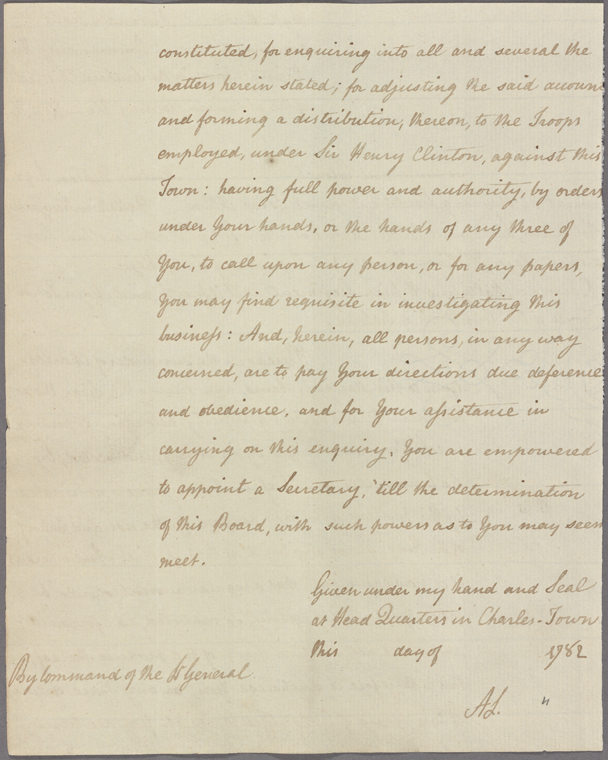 constituted, for enquiring into all and several the
matters herein stated; for adjusting the said accoun
and forming a distribution, thereon, to the Troops
employed, under Sir Henry Clinton, against this
Town: having full power and authority, by orders
under Your hands, or the hands of any three of
You, to call upon any person, or for any papers,
You may find requisite in investigating this
business: And, herein, all persons, in any way
concerned, are to pay Your directions due deference
and obedience, and for Your assistance in
carrying on this enquiry, You are empowered
to appoint a Secretary, 'till the determination
of this Board, with such powers as to You may seem
meet.
Given under my hand and Seal
at Head Quarters in Charles-Town
this day of 1782
By Command of the Lt General
AL. "